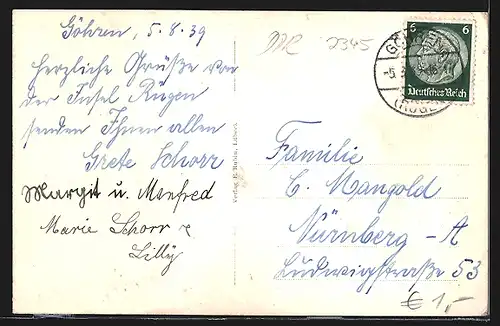 Göhren, 5.8.39
Herzliche Grüße von
der Insel Rügen
senden Ihnen allen
Grete Schorr
Margit u. Manfred
Marie Schorr
Lilly
2345
GÖHREN
(RÜGEN)
6 6
Deutsches Reich
Familie
C. Mangold
Nürnberg - A
Ludwigstraße 53
€ 1,-